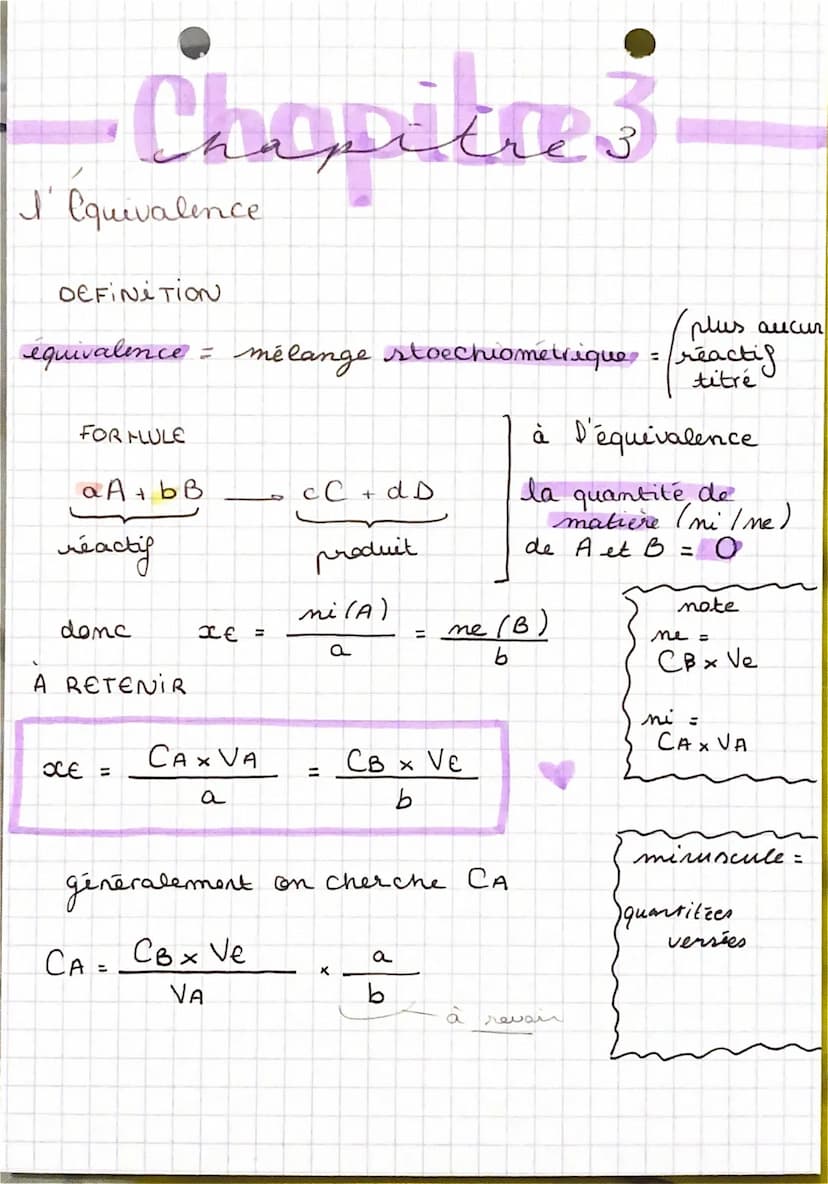 Chapitre 3
chapitre 3
l'Équivalence
DEFINITION
équivalence = mélange stoechiométrique = (plus aucun
réactif
titré
FORMULE
aA + bB → cC + dD
réactif produit
à l'équivalence
la quantité de
matière (ni / ne)
de A et B = 0
donc xE = ni(A) / a = ne(B) / b
note
ne =
CB x Ve
ni =
CA x VA
À RETENIR
xE = CA x VA / a = CB x VE / b
minuscule =
quantitées
versées
généralement on cherche CA
CA = CB x VE / VA x a / b
à revoir